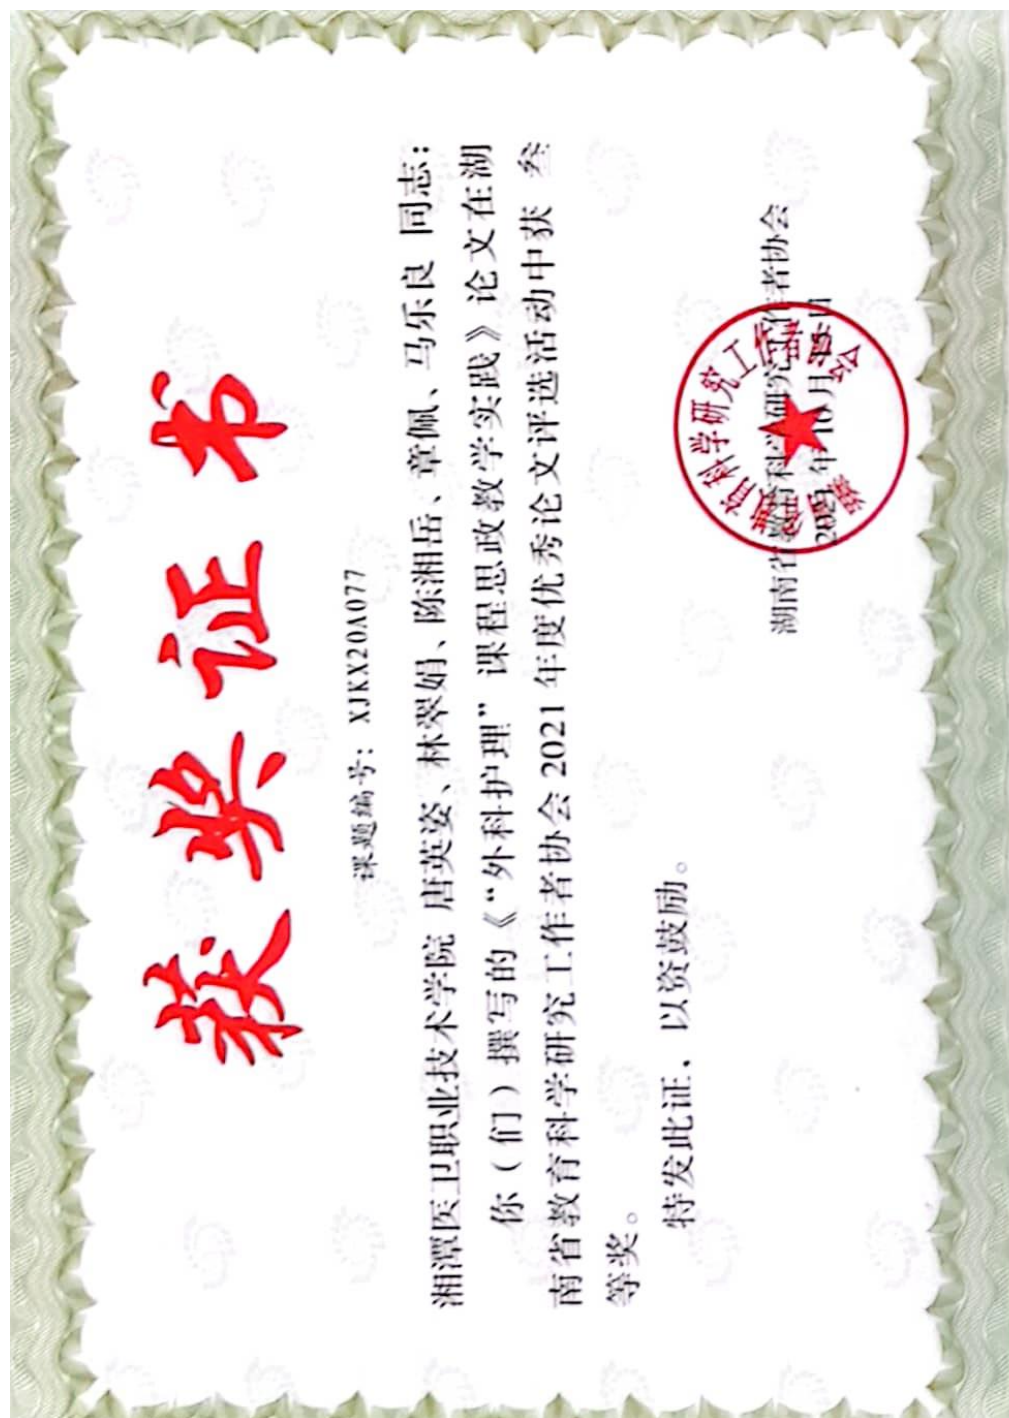 获奖证书
课题编号：XJKX20A077
湘潭医卫职业技术学院 唐英姿、林翠娟、陈湘岳、章佩、马乐良 同志：
你（们）撰写的《“外科护理”课程思政教学实践》论文在湖
南省教育科学研究工作者协会 2021 年度优秀论文评选活动中获 叁
等奖。
特发此证、以资鼓励。
湖南省教育科学研究工作者协会
2021 年 10 月